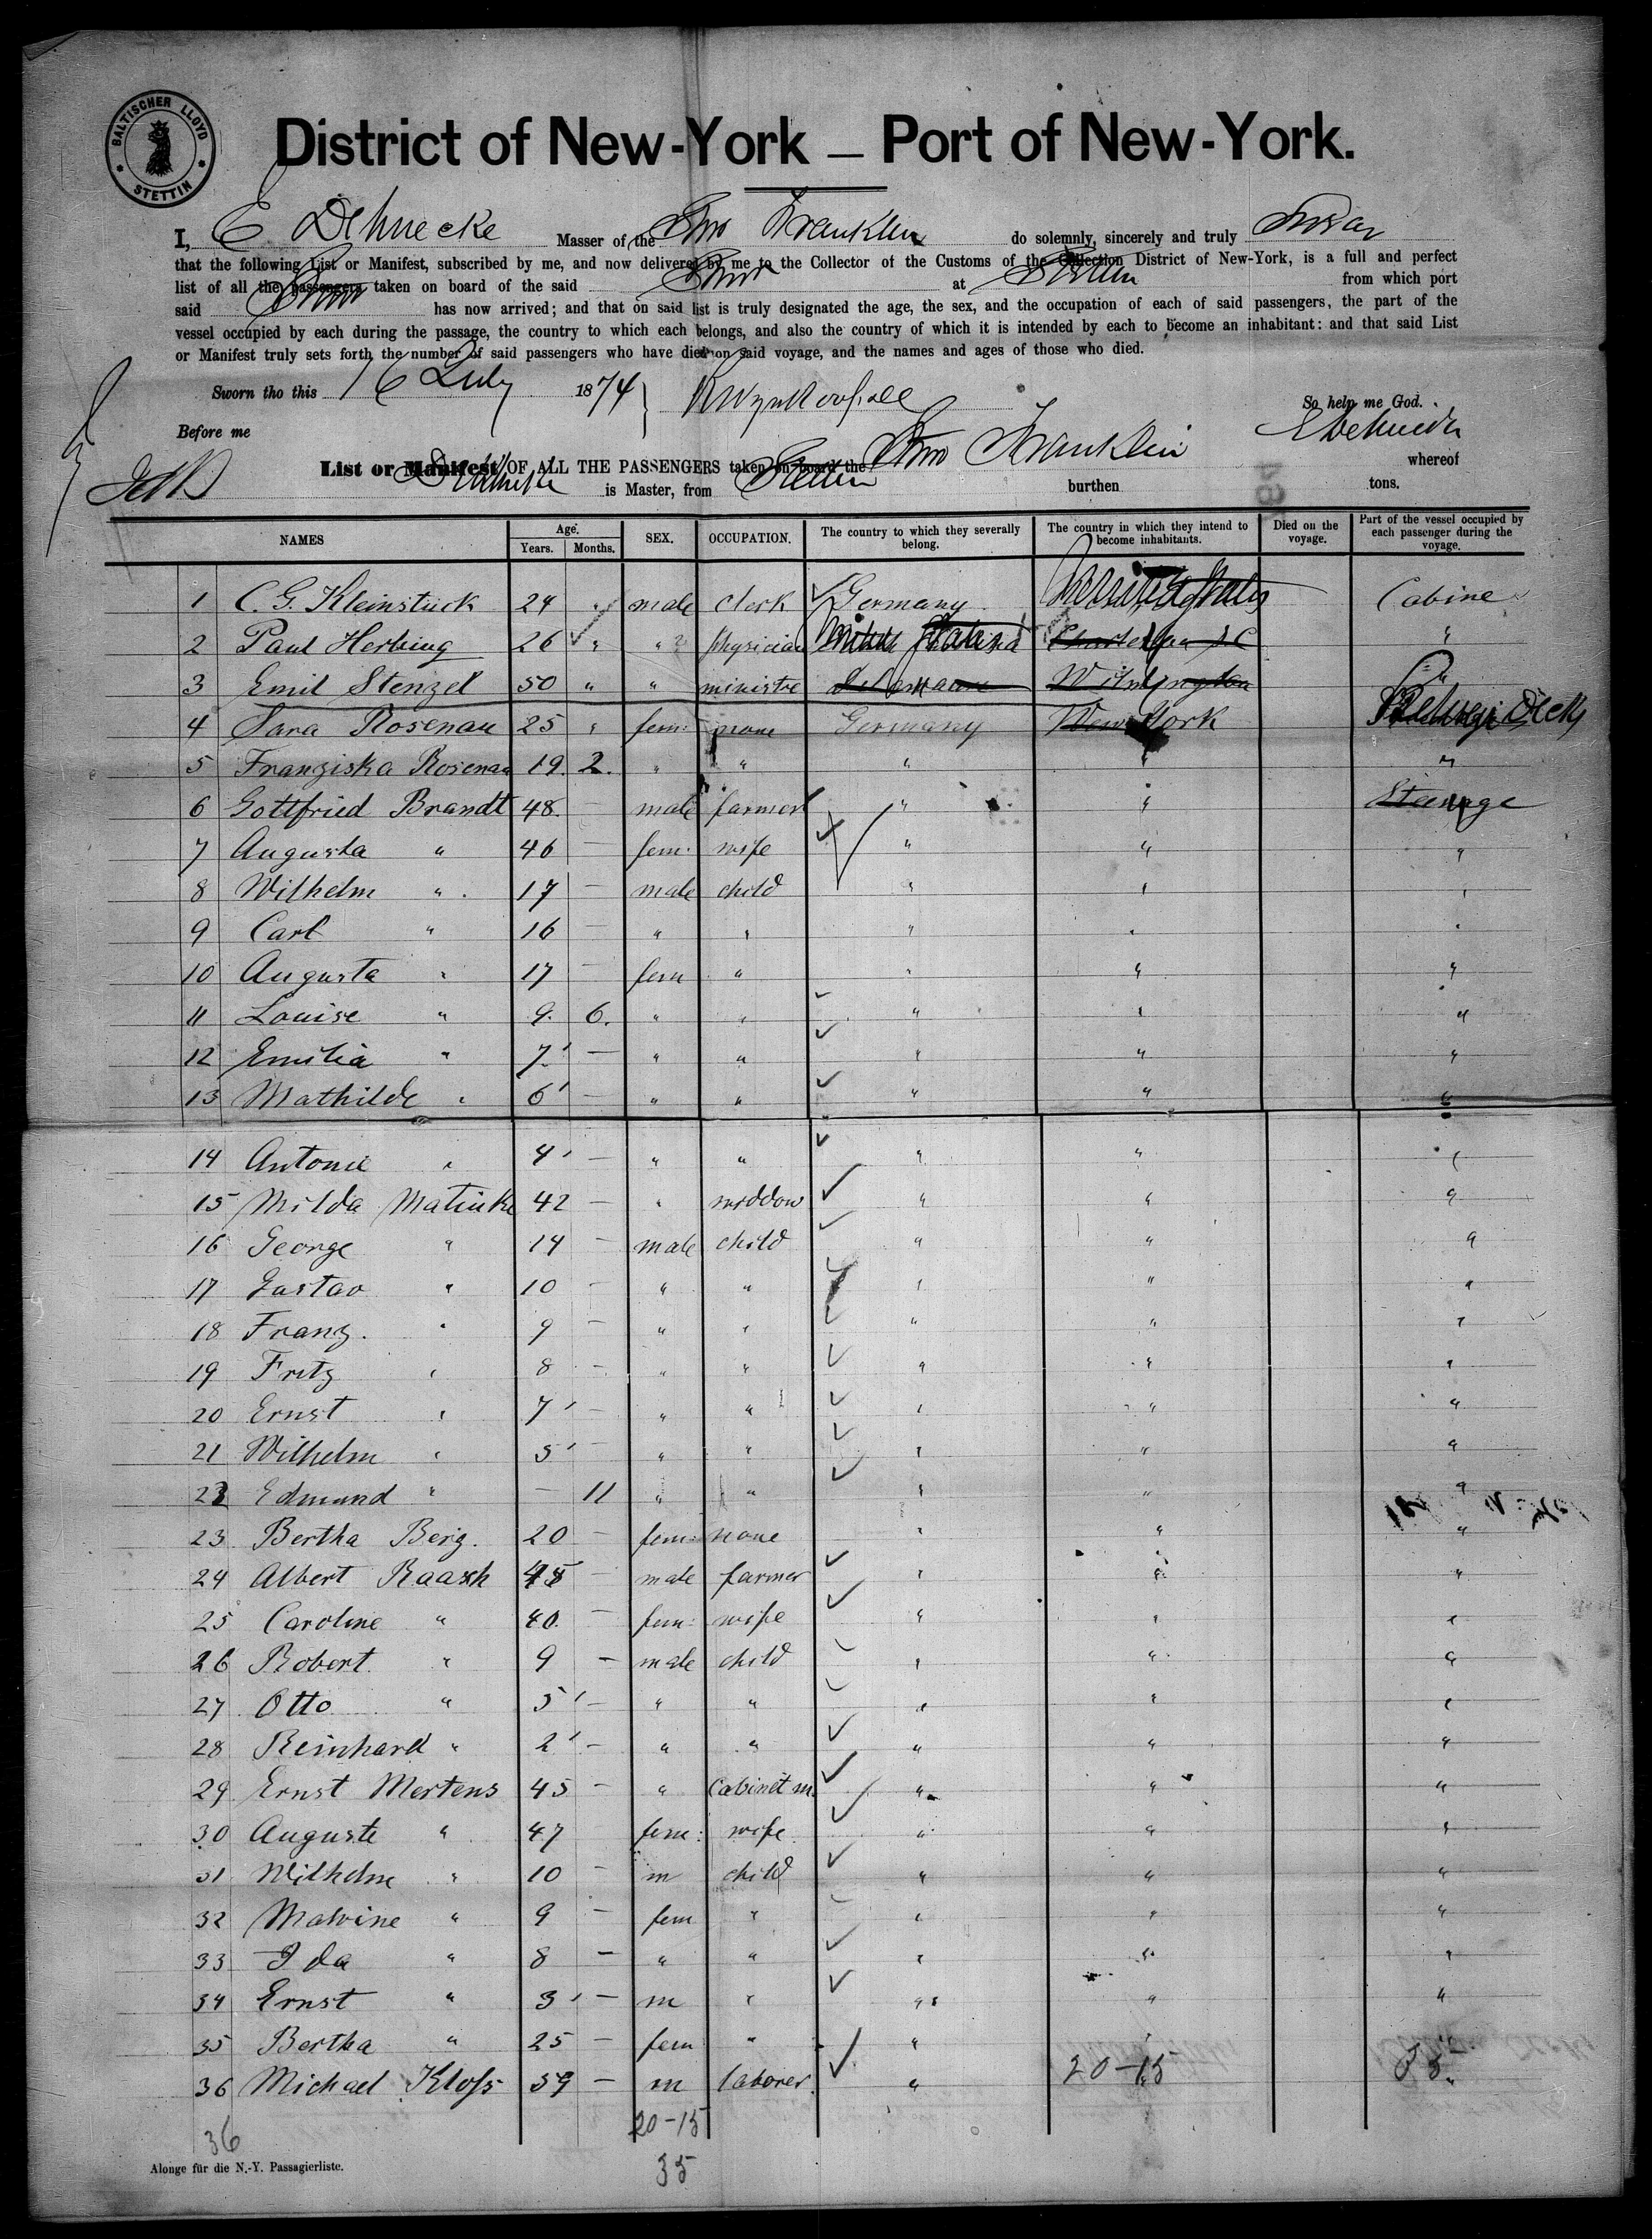 BALTISCHER LLOYD
STETTIN
District of New-York — Port of New-York.
I, E. Dehnecke Masser of the Stmr Franklin do solemnly, sincerely and truly Swear
that the following List or Manifest, subscribed by me, and now delivered by me to the Collector of the Customs of the Collection District of New-York, is a full and perfect
list of all the passengers taken on board of the said Stmr at Stettin from which port
said Stmr has now arrived; and that on said list is truly designated the age, the sex, and the occupation of each of said passengers, the part of the
vessel occupied by each during the passage, the country to which each belongs, and also the country of which it is intended by each to become an inhabitant: and that said List
or Manifest truly sets forth the number of said passengers who have died on said voyage, and the names and ages of those who died.
Sworn tho this 16 July 1874
So help me God.
Before me
List or Manifest OF ALL THE PASSENGERS taken on board the Stmr Franklin whereof
is Master, from Stettin burthen tons.
NAMES Age. Years. Months. SEX. OCCUPATION. The country to which they severally belong. The country in which they intend to become inhabitants. Died on the voyage. Part of the vessel occupied by each passenger during the voyage.
1 C. G. Kleinstück 24 " male clerk Germany United States Cabine
2 Paul Herbing 26 " " physician "
3 Emil Stenzel 50 " " ministre Wilmington "
4 Sara Rosenau 25 " fem: none Germany New York
5 Franziska Rosenau 19. 2. " " " " "
6 Gottfried Brandt 48. — male farmer " " Steerage
7 Augusta " 46 — fem: wife " " "
8 Wilhelm " 17 — male child " " "
9 Carl " 16 — " " " " "
10 Augusta " 17 — fem " " " "
11 Louise " 9. 6. " " " " "
12 Emilia " 7. — " " " " "
13 Mathilde " 6 — " " " " "
14 Antonie " 4 — " " " " "
15 Milda Matinke 42 — " widdow " " "
16 George " 14 — male child " " "
17 Gustav " 10 — " " " " "
18 Franz. " 9 — " " " " "
19 Fritz " 8 — " " " " "
20 Ernst " 7 — " " " " "
21 Wilhelm " 5 — " " " " "
22 Edmund " — 11 " " " " "
23 Bertha Berg. 20 — fem: none " " "
24 Albert Raash 45 — male farmer " " "
25 Caroline " 40. — fem: wife " " "
26 Robert " 9 — male child " " "
27 Otto " 5 — " " " " "
28 Reinhard " 2 — " " " " "
29 Ernst Mertens 45 — " Cabinet m. " " "
30 Auguste " 47 fem: wife " " "
31 Wilhelm " 10 — m child " " "
32 Malvine " 9 — fem " " " "
33 Ida " 8 — " " " " "
34 Ernst " 3 — m " " " "
35 Bertha " 25 — fem " " " "
36 Michael Kloss 59 — m laborer. " " "
20-15 35
20-15
36
35
Alonge für die N.-Y. Passagierliste.